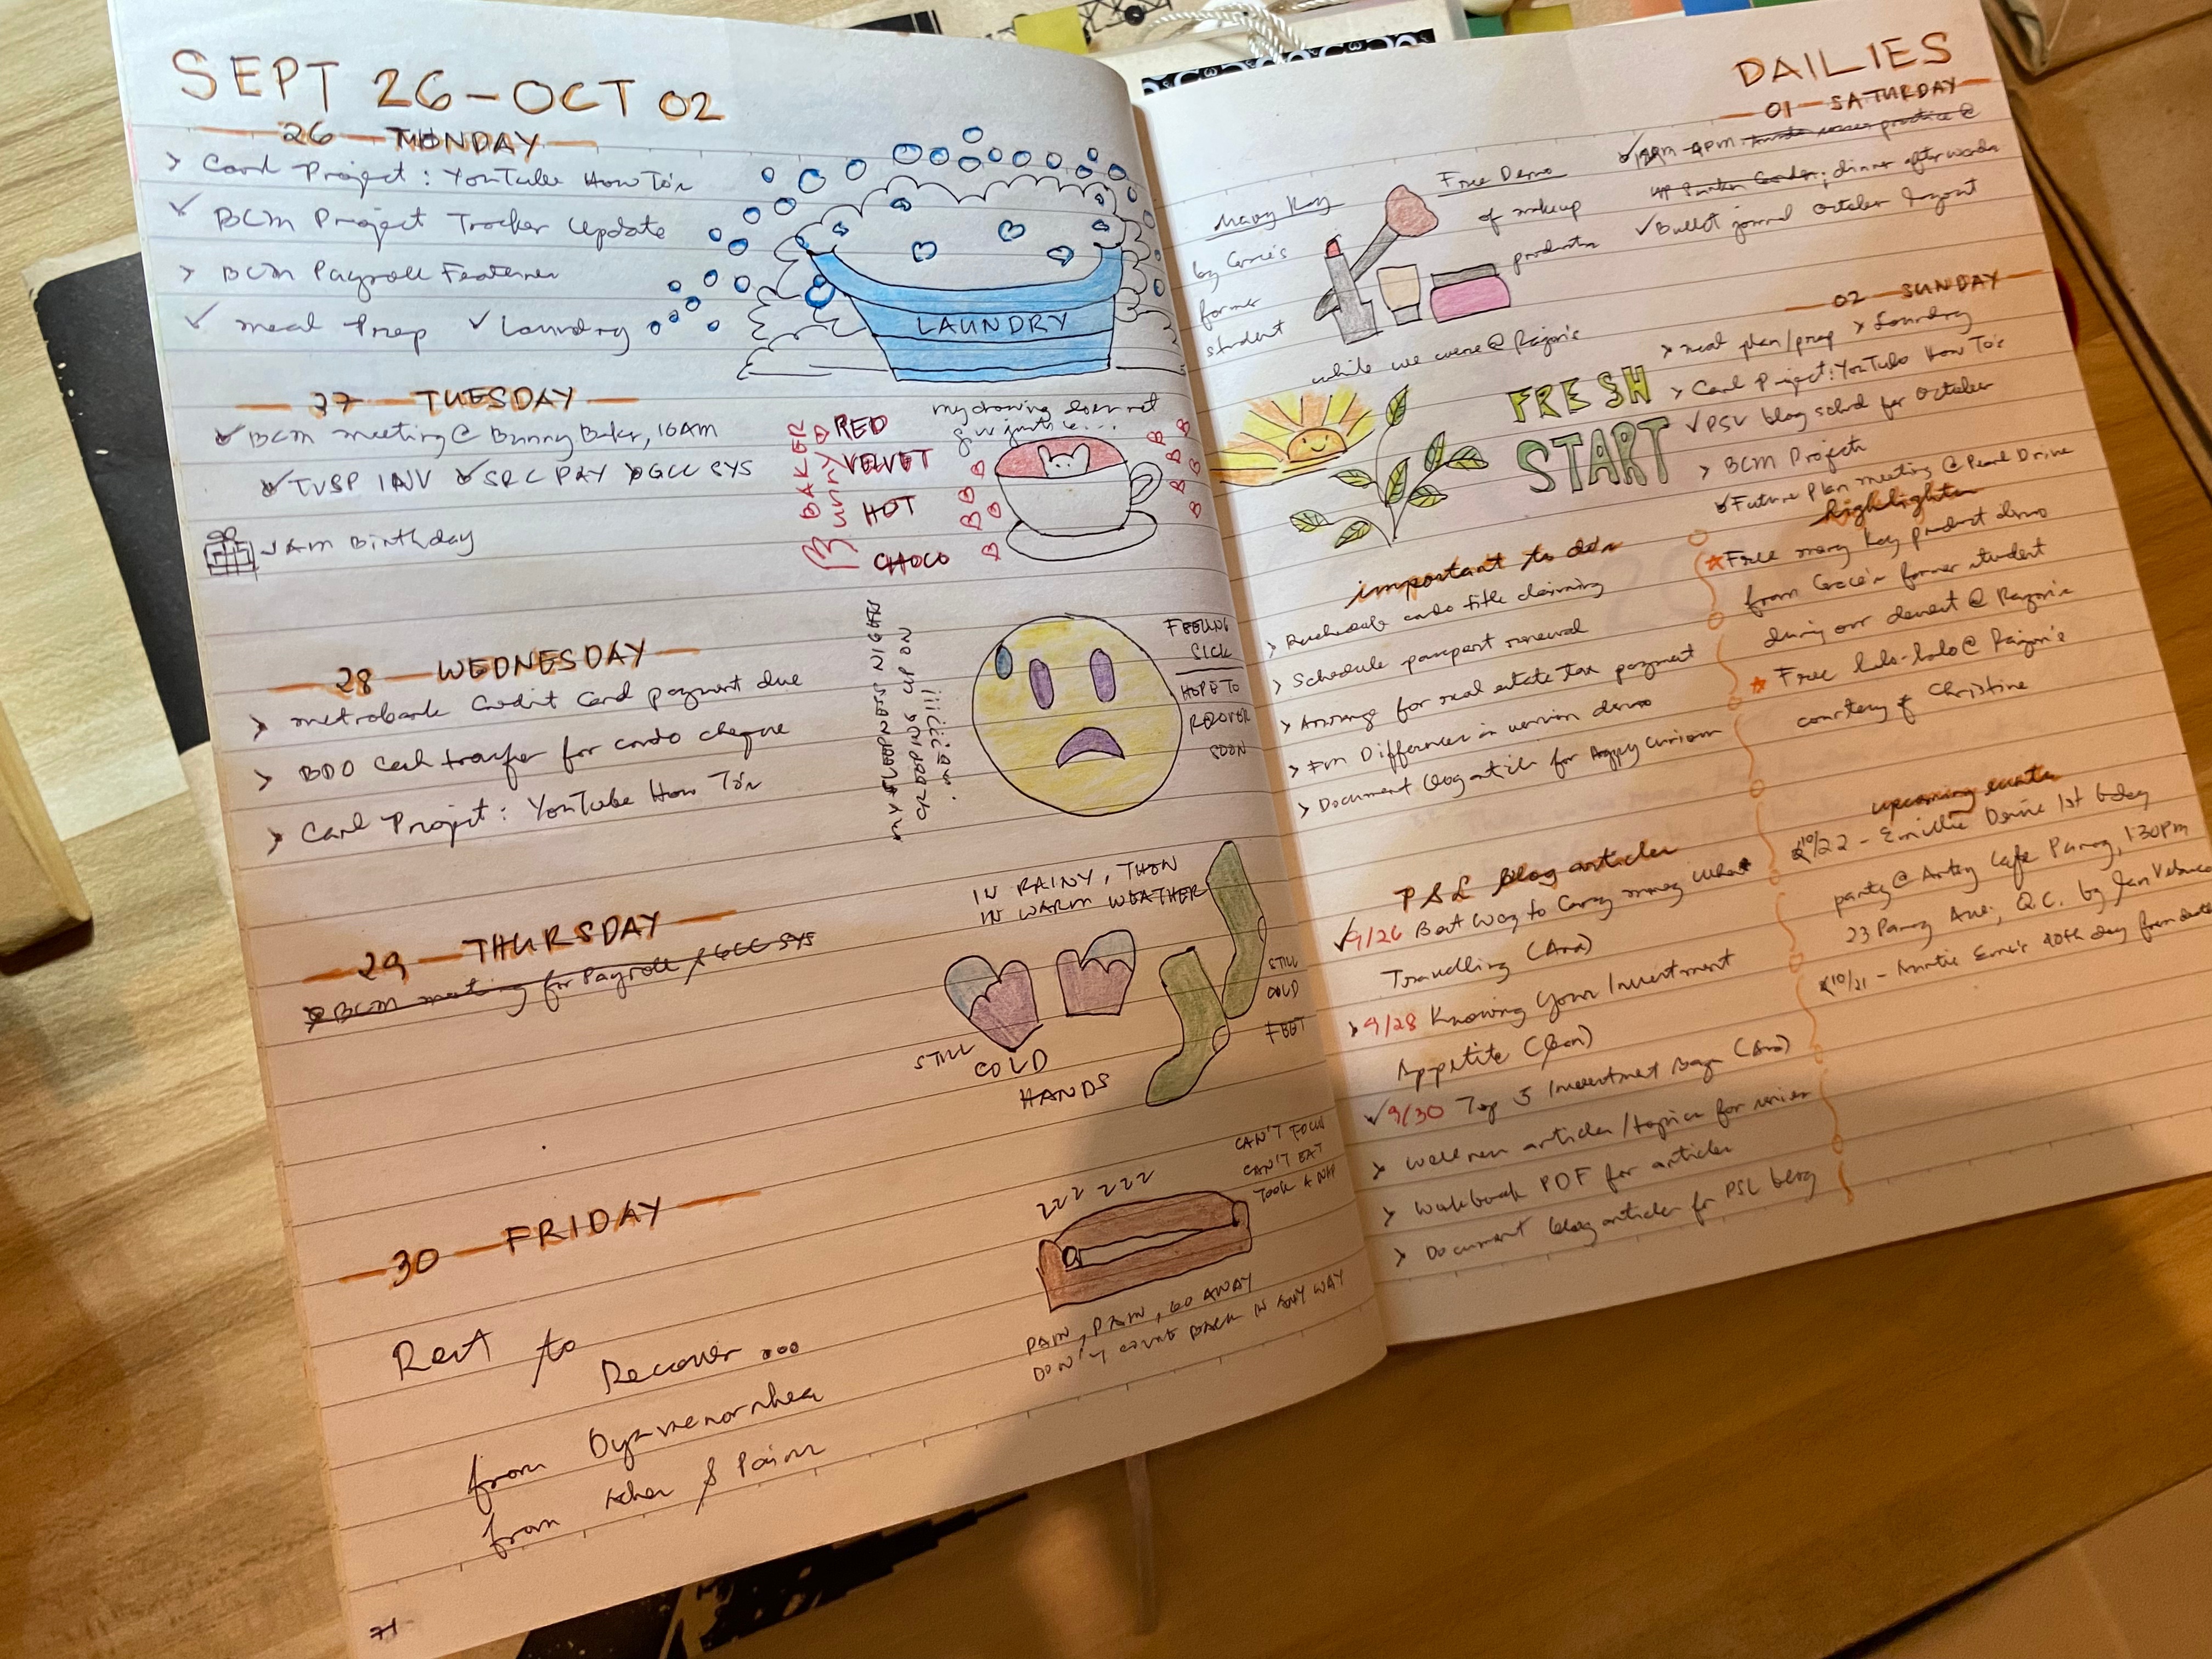 SEPT 26-OCT 02
26 MONDAY
> Carl Project: YouTube How To's
✓ BCM Project Tracker Update
> BCM Payroll Features
✓ Meal Prep ✓ Laundry
LAUNDRY
27 TUESDAY
✓ BCM meeting @ Bunny Baker, 10AM
✓ TVSP INV ✓ SRC PAY > GCC SYS
JAM Birthday
BUNNY BAKER
RED
VELVET
HOT
CHOCO
my drawing does not
give justice...
28 WEDNESDAY
> Metrobank Credit Card payment due
> BDO Cash transfer for condo cheque
> Carl Project: YouTube How To's
FEELING
SICK
HOPE TO
RECOVER
SOON
29 THURSDAY
BCM meeting for Payroll & GCC SYS
IN RAINY, THEN
IN WARM WEATHER
STILL
COLD
HANDS
STILL
COLD
FEET
30 FRIDAY
Rest to
Recover...
from Dysmenorrhea
from aches & pains
ZZZ ZZZ
CAN'T FOCUS
CAN'T EAT
TOOK A NAP
PAIN, PAIN, GO AWAY
DON'T COME BACK IN ANY WAY
71
DAILIES
01 SATURDAY
practice @
dinner afterwards
✓ Bullet journal October layout
Mary Kay
by Grace's
former
student
Free Demo
of makeup
products
while we were @ Razon's
02 SUNDAY
> Meal plan/prep > Laundry
> Carl Project: YouTube How To's
✓ PSL blog sched for October
> BCM Projects
✓ Future Plan meeting @ Pearl Drive
FRESH
START
important to do's
> Reschedule condo title claiming
> Schedule passport renewal
> Arrange for real estate tax payment
> FM Differences in version demo
> Document blog article for
highlights
Free Mary Kay product demo
from Grace's former student
during our dessert @ Razon's
Free halo-halo @ Razon's
courtesy of Christine
PSL blog articles
✓ 9/26 Best Way to Carry Money When
Travelling (Ana)
> 9/28 Knowing Your Investment
Appetite
✓ 9/30 Top 5 Investment
> articles/topics for
> Workbook PDF for articles
> Document blog articles for PSL blog
upcoming events
10/22 - 1st bday
party @ Cafe Panay, 1:30PM
23 Panay Ave, Q.C. by Jan
10/21 - Auntie 40th day from death